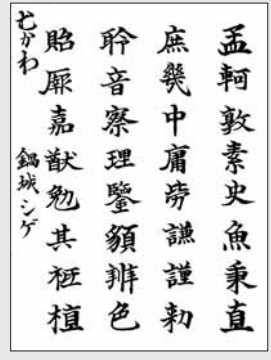 孟軻敦素史魚秉直
庶幾中庸勞謙謹勅
聆音察理鑒䫉辨色
貽厥嘉猷勉其祗植
七かわ 鍋城シゲ